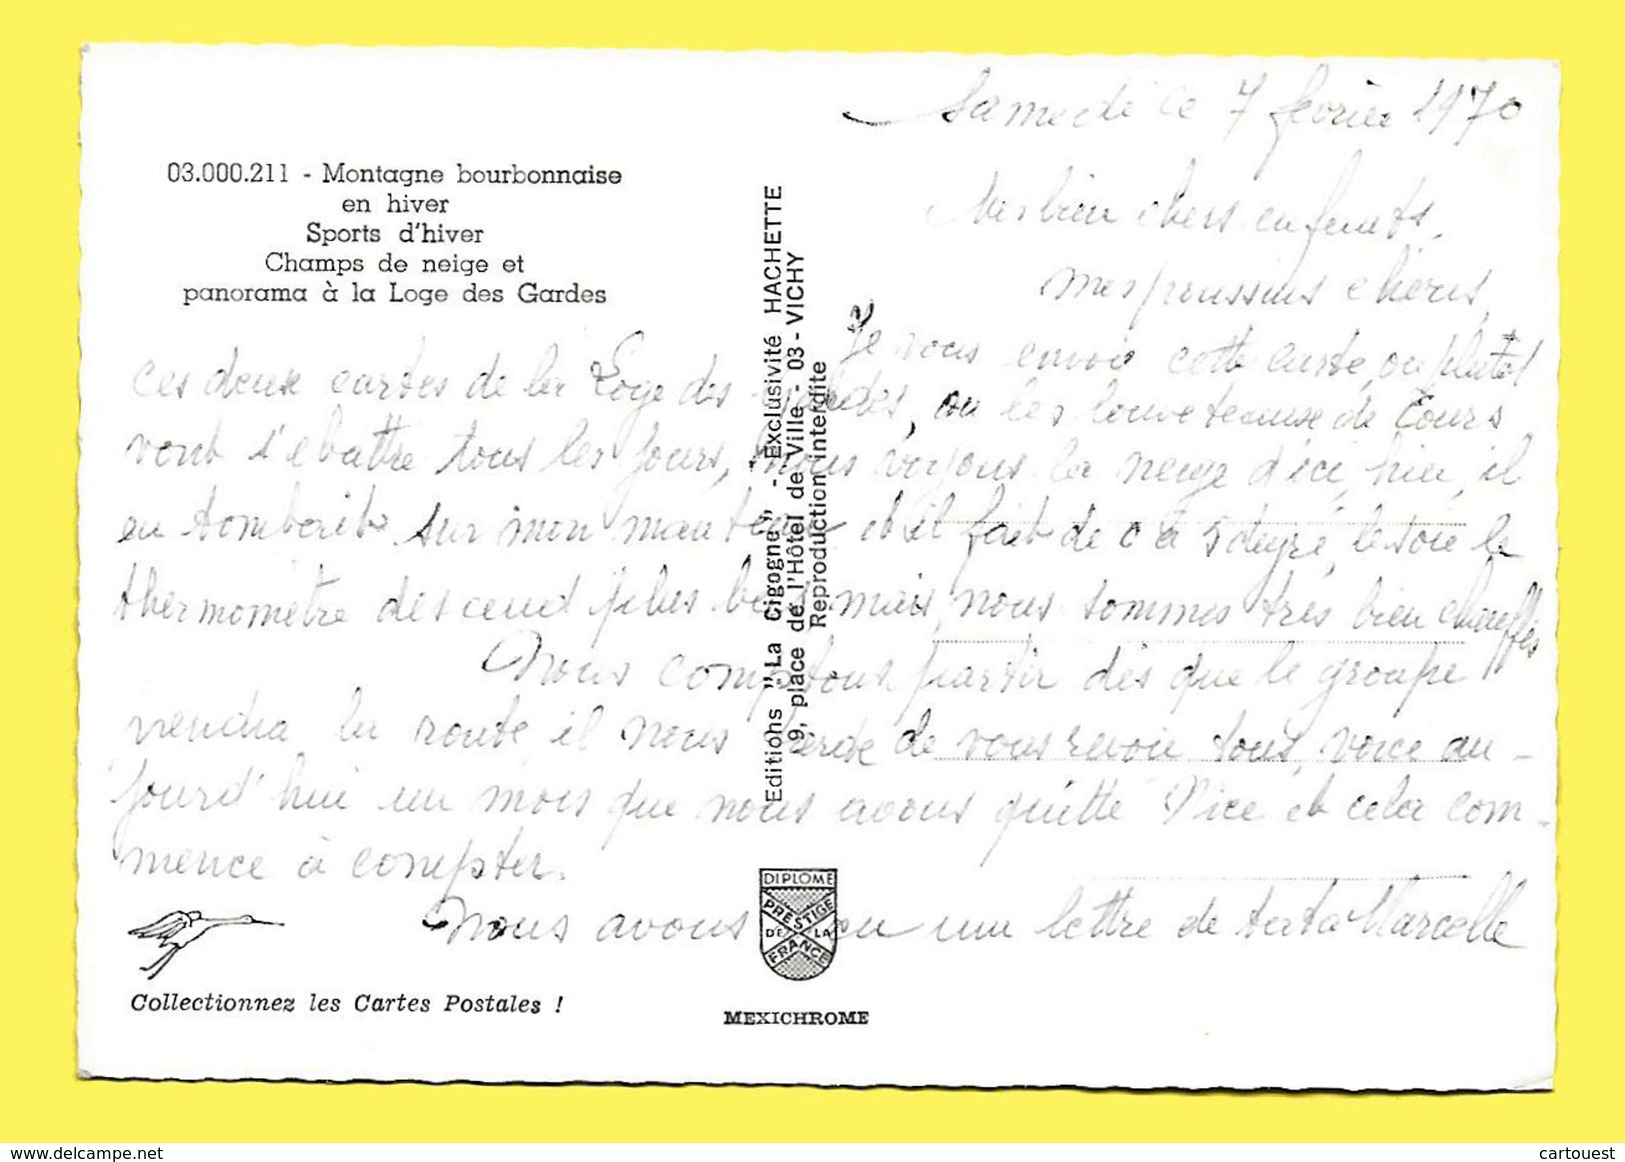 Samedi ce 7 février 1970
03.000.211 - Montagne bourbonnaise
en hiver
Sports d'hiver
Champs de neige et
panorama à la Loge des Gardes
Mes bien chers enfants,
mes poussins chéris,
Je vous envoie cette carte, ou plutôt
ces deux cartes de la Loge des Gardes, ou les de Cours
vont s'ebattre tous les jours, nous voyons la neige d'ici, hier, il
en tombait sur mon manteau et il fait de 0 a 5 degré, le soir le
thermomètre descend plus bas, mais nous sommes très bien chauffés
Nous comptons partir dès que le groupe
viendra la route, il nous de vous revoir tous, voice au-
jourd'hui un mois que nous avons quitté Nice et cela com-
mence à compter.
Nous avons eu une lettre de tata Marcelle
Editions "La Cigogne" - Exclusivité HACHETTE
9, place de l'Hôtel de Ville - 03 - VICHY
Reproduction interdite
DIPLOME
PRESTIGE
DE LA
FRANCE
Collectionnez les Cartes Postales !
MEXICHROME
delcampe.net
cartouest